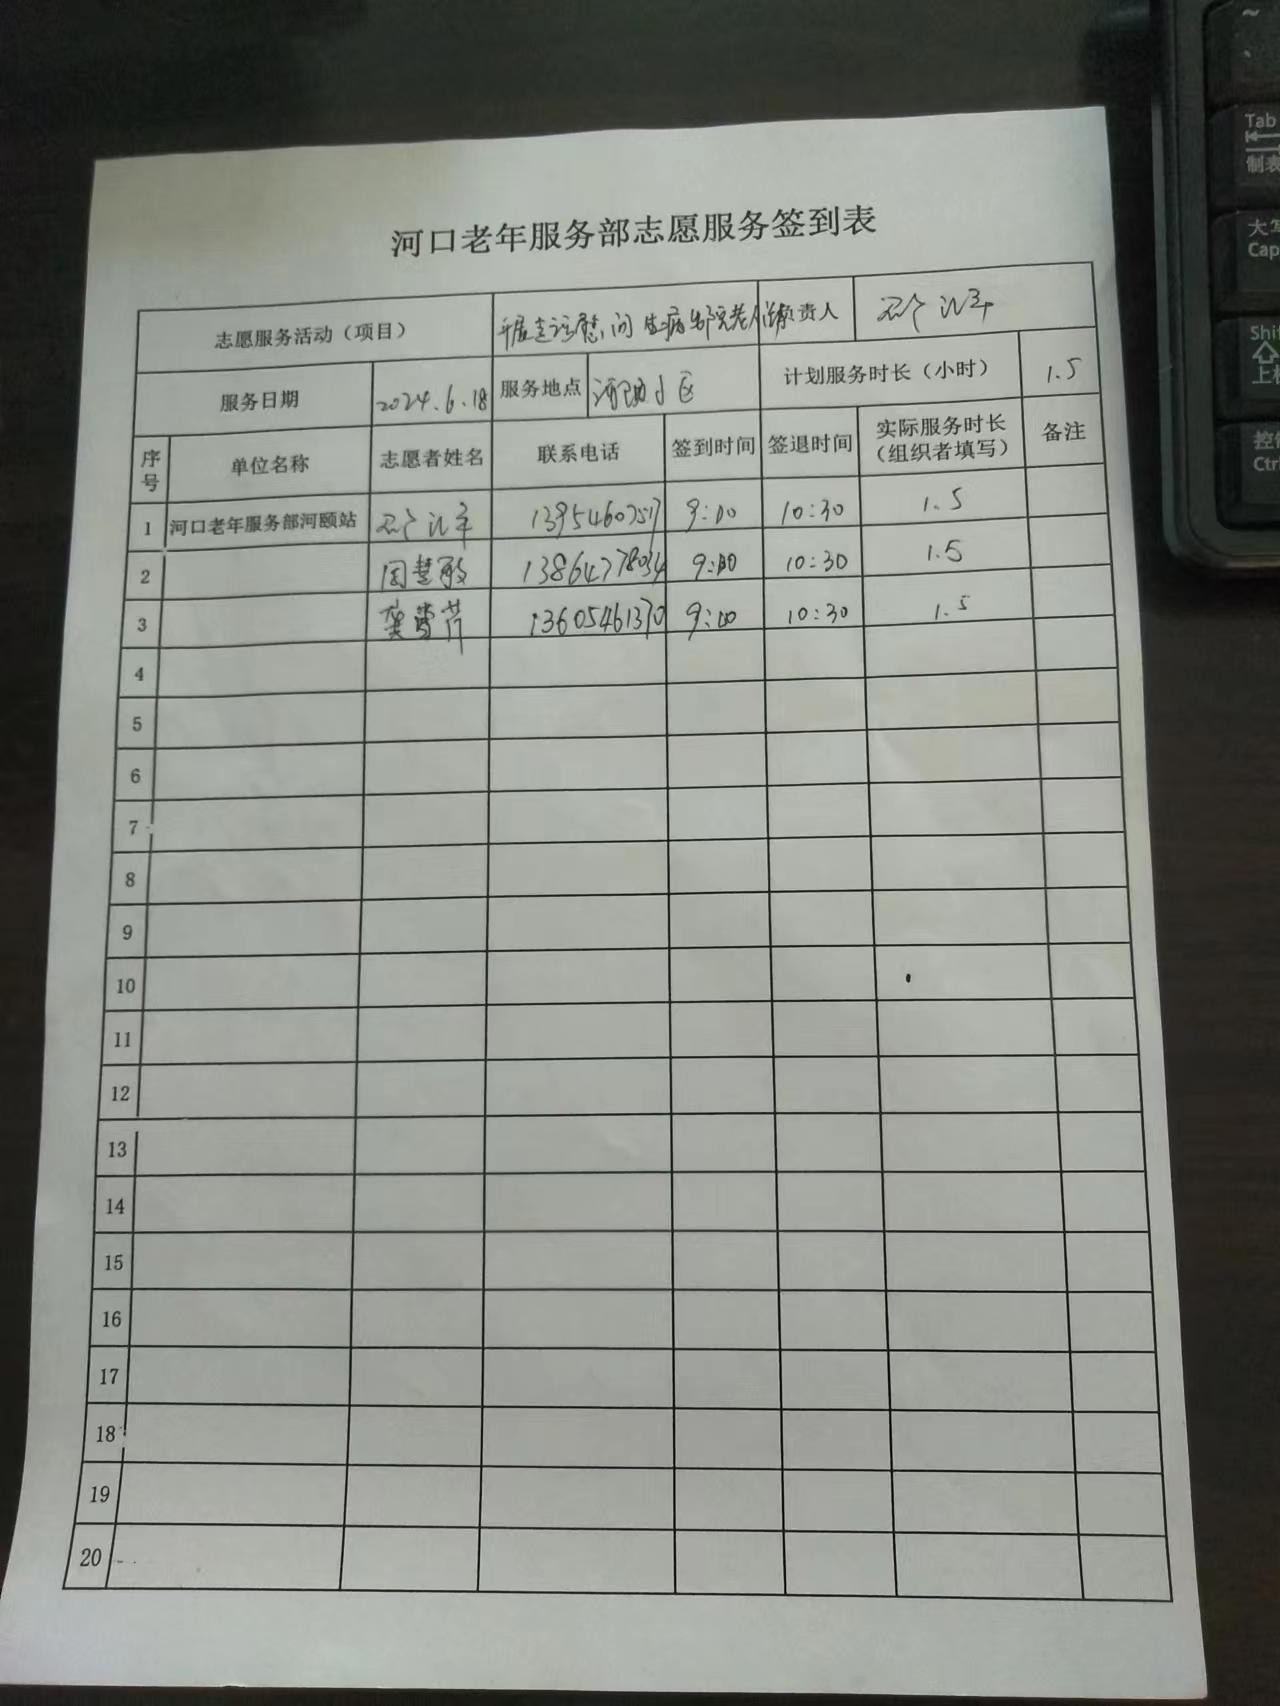 河口老年服务部志愿服务签到表
志愿服务活动（项目） 开展走访慰问生病出院老人 负责人
服务日期 2024.6.18 服务地点 小区 计划服务时长（小时） 1.5
序号 单位名称 志愿者姓名 联系电话 签到时间 签退时间 实际服务时长（组织者填写） 备注
1 河口老年服务部河颐站 9:00 10:30 1.5
2 周慧敏 13864778034 9:00 10:30 1.5
3 13605461370 9:00 10:30 1.5
4
5
6
7
8
9
10
11
12
13
14
15
16
17
18
19
20
Tab
制表
大写
Cap
Shi
上档
控制
Ctrl